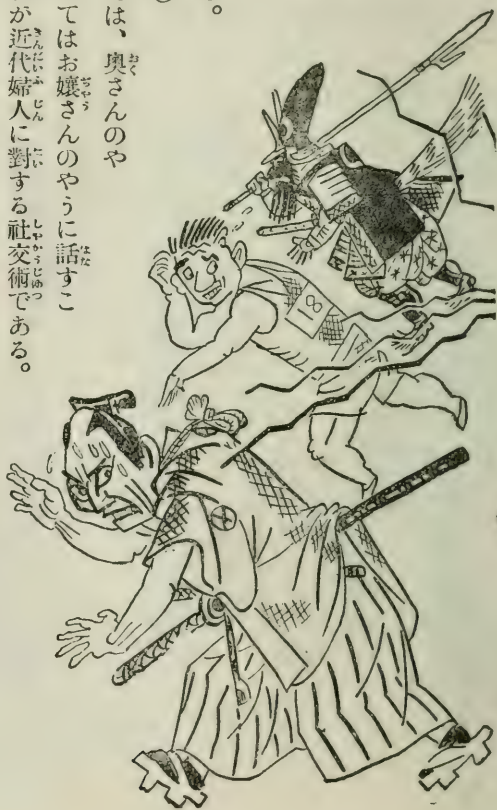 。
は、奥さんのや
てはお孃さんのやうに話すこ
が近代婦人に對する社交術である。
18